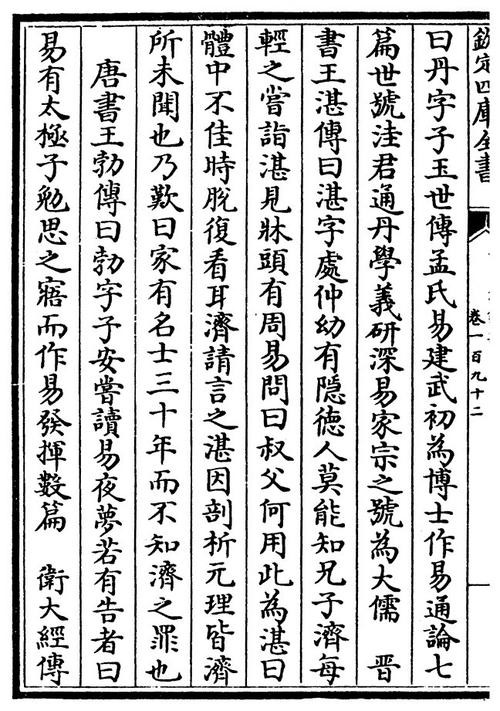 欽定四庫全書
卷一百九十二
曰丹字子玉世傳孟氏易建武初為博士作易通論七
篇世號洼君通丹學義研深易家宗之號為大儒 晉
書王湛傳曰湛字處仲幼有隱德人莫能知兄子濟每
輕之嘗詣湛見牀頭有周易問曰叔父何用此為湛曰
體中不佳時脫復看耳濟請言之湛因剖析元理皆濟
所未聞也乃歎曰家有名士三十年而不知濟之罪也
唐書王勃傳曰勃字子安嘗讀易夜夢若有告者曰
易有太極子勉思之寤而作易發揮數篇 衛大經傳